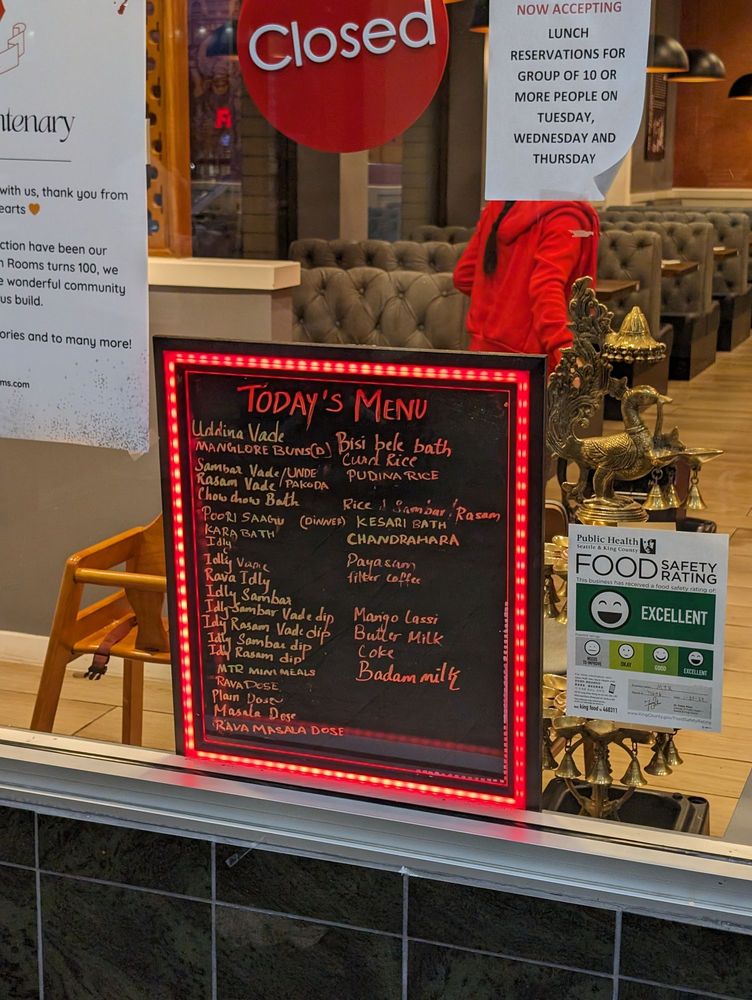 Closed
NOW ACCEPTING
LUNCH
RESERVATIONS FOR
GROUP OF 10 OR
MORE PEOPLE ON
TUESDAY,
WEDNESDAY AND
THURSDAY
ntenary
with us, thank you from
earts
ction have been our
n Rooms turns 100, we
e wonderful community
us build.
ories and to many more!
ms.com
TODAY'S MENU
Uddina Vade
MANGLORE BUNS(D)
Sambar Vade/UNDE
Rasam Vade/PAKODA
Chow chow Bath
POORI SAAGU (DINNER)
KARA BATH
Idly
Idly Vade
Rava Idly
Idly Sambar
Idly Sambar Vade dip
Idly Rasam Vade dip
Idly Sambar dip
Idly Rasam dip
MTR MINI MEALS
RAVA DOSE
Plain Dose
Masala Dose
RAVA MASALA DOSE
Bisi bele bath
Curd Rice
PUDINA RICE
Rice / Sambar/Rasam
KESARI BATH
CHANDRAHARA
Payasam
filter coffee
Mango Lassi
Butter Milk
Coke
Badam milk
Public Health
Seattle & King County
FOOD SAFETY RATING
This business has received a food safety rating of:
EXCELLENT
NEEDS TO IMPROVE
OKAY
GOOD
EXCELLENT